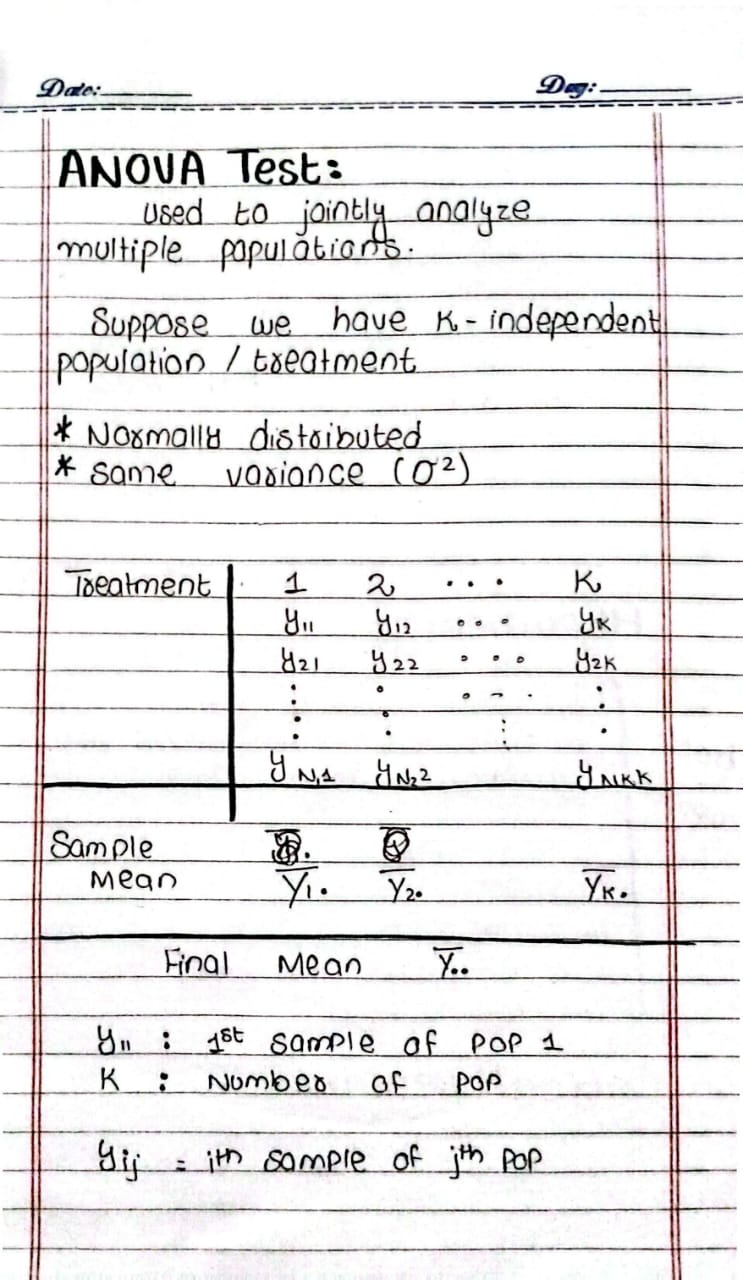 Date: Day:
ANOVA Test:
used to jointly analyze
multiple populations.
Suppose we have K - independent
population / treatment
* Normally distributed
* same variance (σ²)
Treatment 1 2 ... K
y11 y12 ... yK
y21 y22 ... y2K
: : ... :
yN11 yN22 yNKK
Sample
Mean Ȳ1. Ȳ2. ȲK.
Final Mean Ȳ..
y11 : 1st sample of POP 1
K : Number of POP
yij = ith sample of jth POP